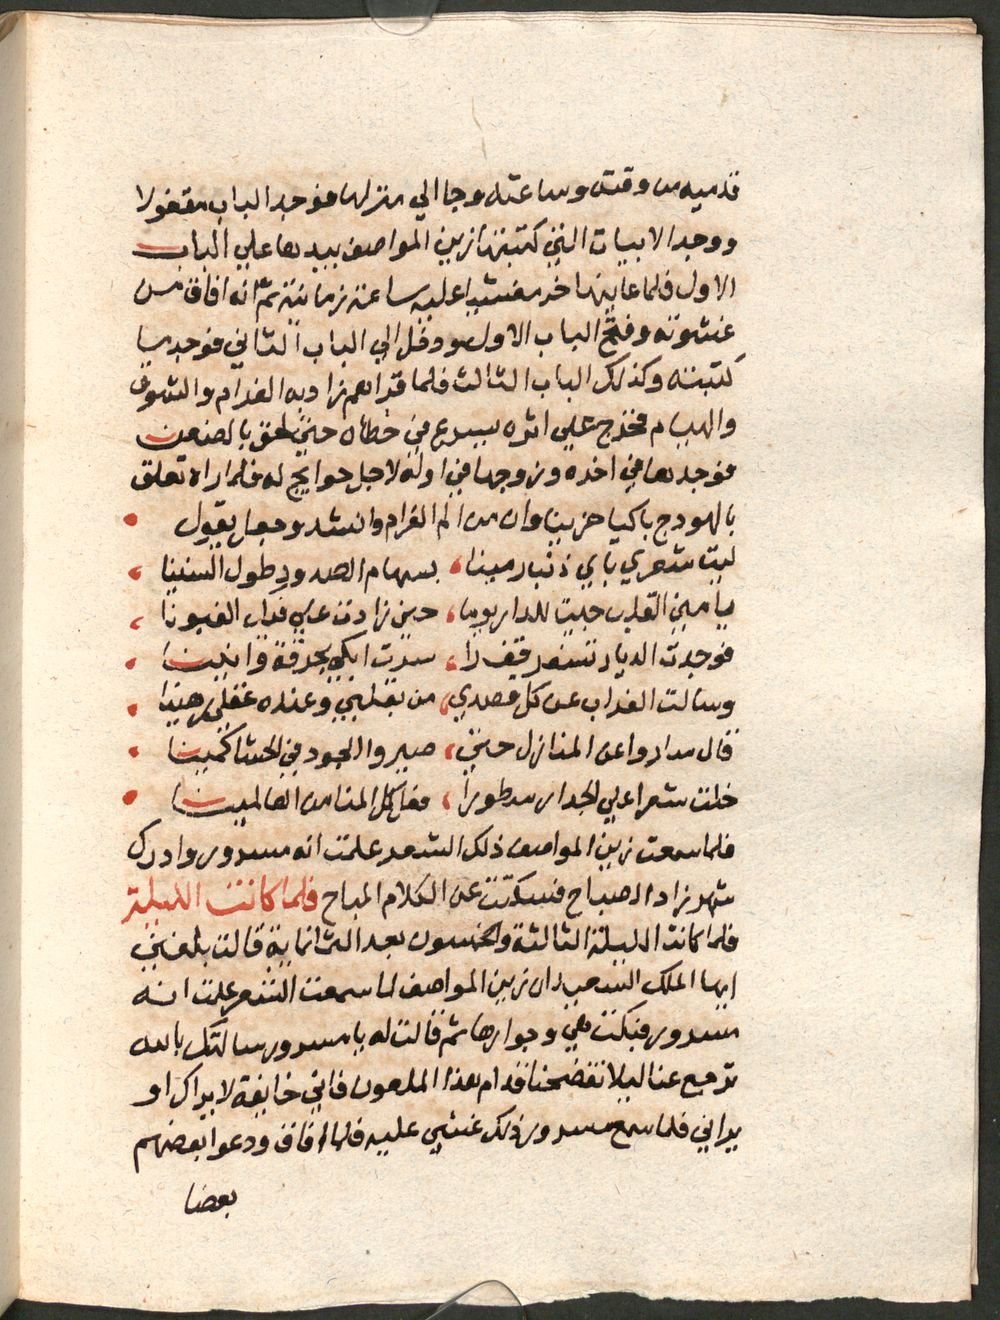 قدميه من وقته وساعته وجا الي منزلها فوجد الباب مقفولا
ووجد الابيات التي كتبتها زين المواصف بيدها علي الباب
الاول فلما عاينها خر مغشيا عليه ساعة زمانية ثم انه افاق من
غشوته وفتح الباب الاول ودخل الي الباب الثاني فوجد ما
كتبته وكذلك الباب الثالث فلما قراهم زاد به الغرام والشوق
والهيام فخرج علي اثره يسرع في خطاه حتي لحق بالضعن
فوجدها في اخره وزوجها في اوله لاجل حوايج له فلما راه تعلق
بالهودج باكيا حزينا وان من الم الغرام وانشد وجعل يقول
ليت شعري باي ذنب رمينا بسهام الصدود طول السنينا
يا مني القلب جيت للدار يوما حين زادت علي فداب الغبونا
فوجدت الديار تسفر قفرا سرت ابكي بحرقة وانينا
وسالت الغراب عن كل قصدي من بقلبي وعنده عقلي رهينا
قال ساروا عن المنازل حتي صيروا الوجد في الحشا كمينا
خلت شعرا علي الجدار سطورا فعل المنا من العالمينا
فلما سمعت زين المواصف ذلك الشعر علمت انه مسرور وادرك
شهرزاد الصباح فسكتت عن الكلام المباح فلما كانت الليلة
فلما كانت الليلة الثالثة والخمسون بعد الثمانماية قالت بلغني
ايها الملك السعيد ان زين المواصف لما سمعت الشعر علمت انه
مسرور فبكت هي وجوارها ثم قالت له يا مسرور سالتك بالله
ترجع عنا ليلا تفضحنا قدام هذا الملعون فاني خايفة لا يراك او
يراني فلما سمع مسرور ذلك غشي عليه فلما افاق ودعوا بعضهم
بعضا